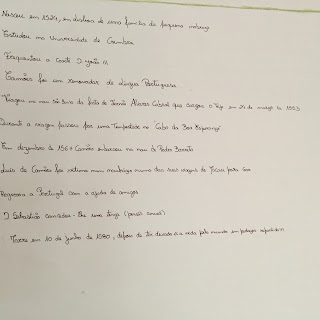 Nasceu em 1524, em Lisboa de uma família da pequena nobreza
Estudou na Universidade de Coimbra
Frequentou a corte D. João III
Camões foi um renovador da língua Portuguesa
Viajou na nau São Bento da frota de Fernão Álvares Cabral que largou o Tejo em 24 de março de 1553
Durante a viagem passou por uma Tempestade no "Cabo da Boa Esperança"
Em dezembro de 1567 Camões embarcou na nau de Pedro Barreto
Luís de Camões foi vítima num naufrágio numa das suas viagens de Macau para Goa
Regressa a Portugal com a ajuda de amigos
D. Sebastião concedeu-lhe uma tença (pensão anual)
Morre em 10 de junho de 1580, depois de ter a vida pelo mundo em pedaços repartida